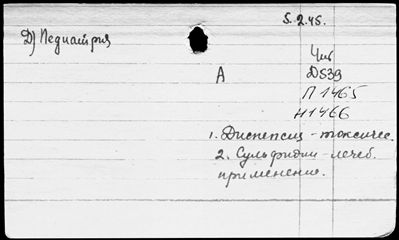 5.2.45.
Д) Педиатрия
Чит
А D539
П 1465
Н 1466
1. Диспепсия - токсичес.
2. Сульфидин - лечеб.
применение.